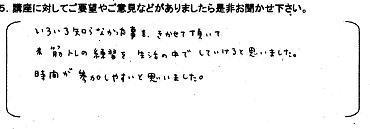 5. 講座に対してご要望やご意見などがありましたら是非お聞かせ下さい。
いろいろ知らなかった事を、きかせて頂いて
筋トレの練習を、生活の中で していけると思いました。
時間が 参加しやすいと思いました。